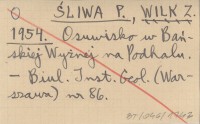 O ŚLIWA P., WILK Z.
1954. Osuwisko w Bań-
skiej Wyżnej na Podhalu.
– Biul. Inst. Geol. (War-
szawa) nr 86.